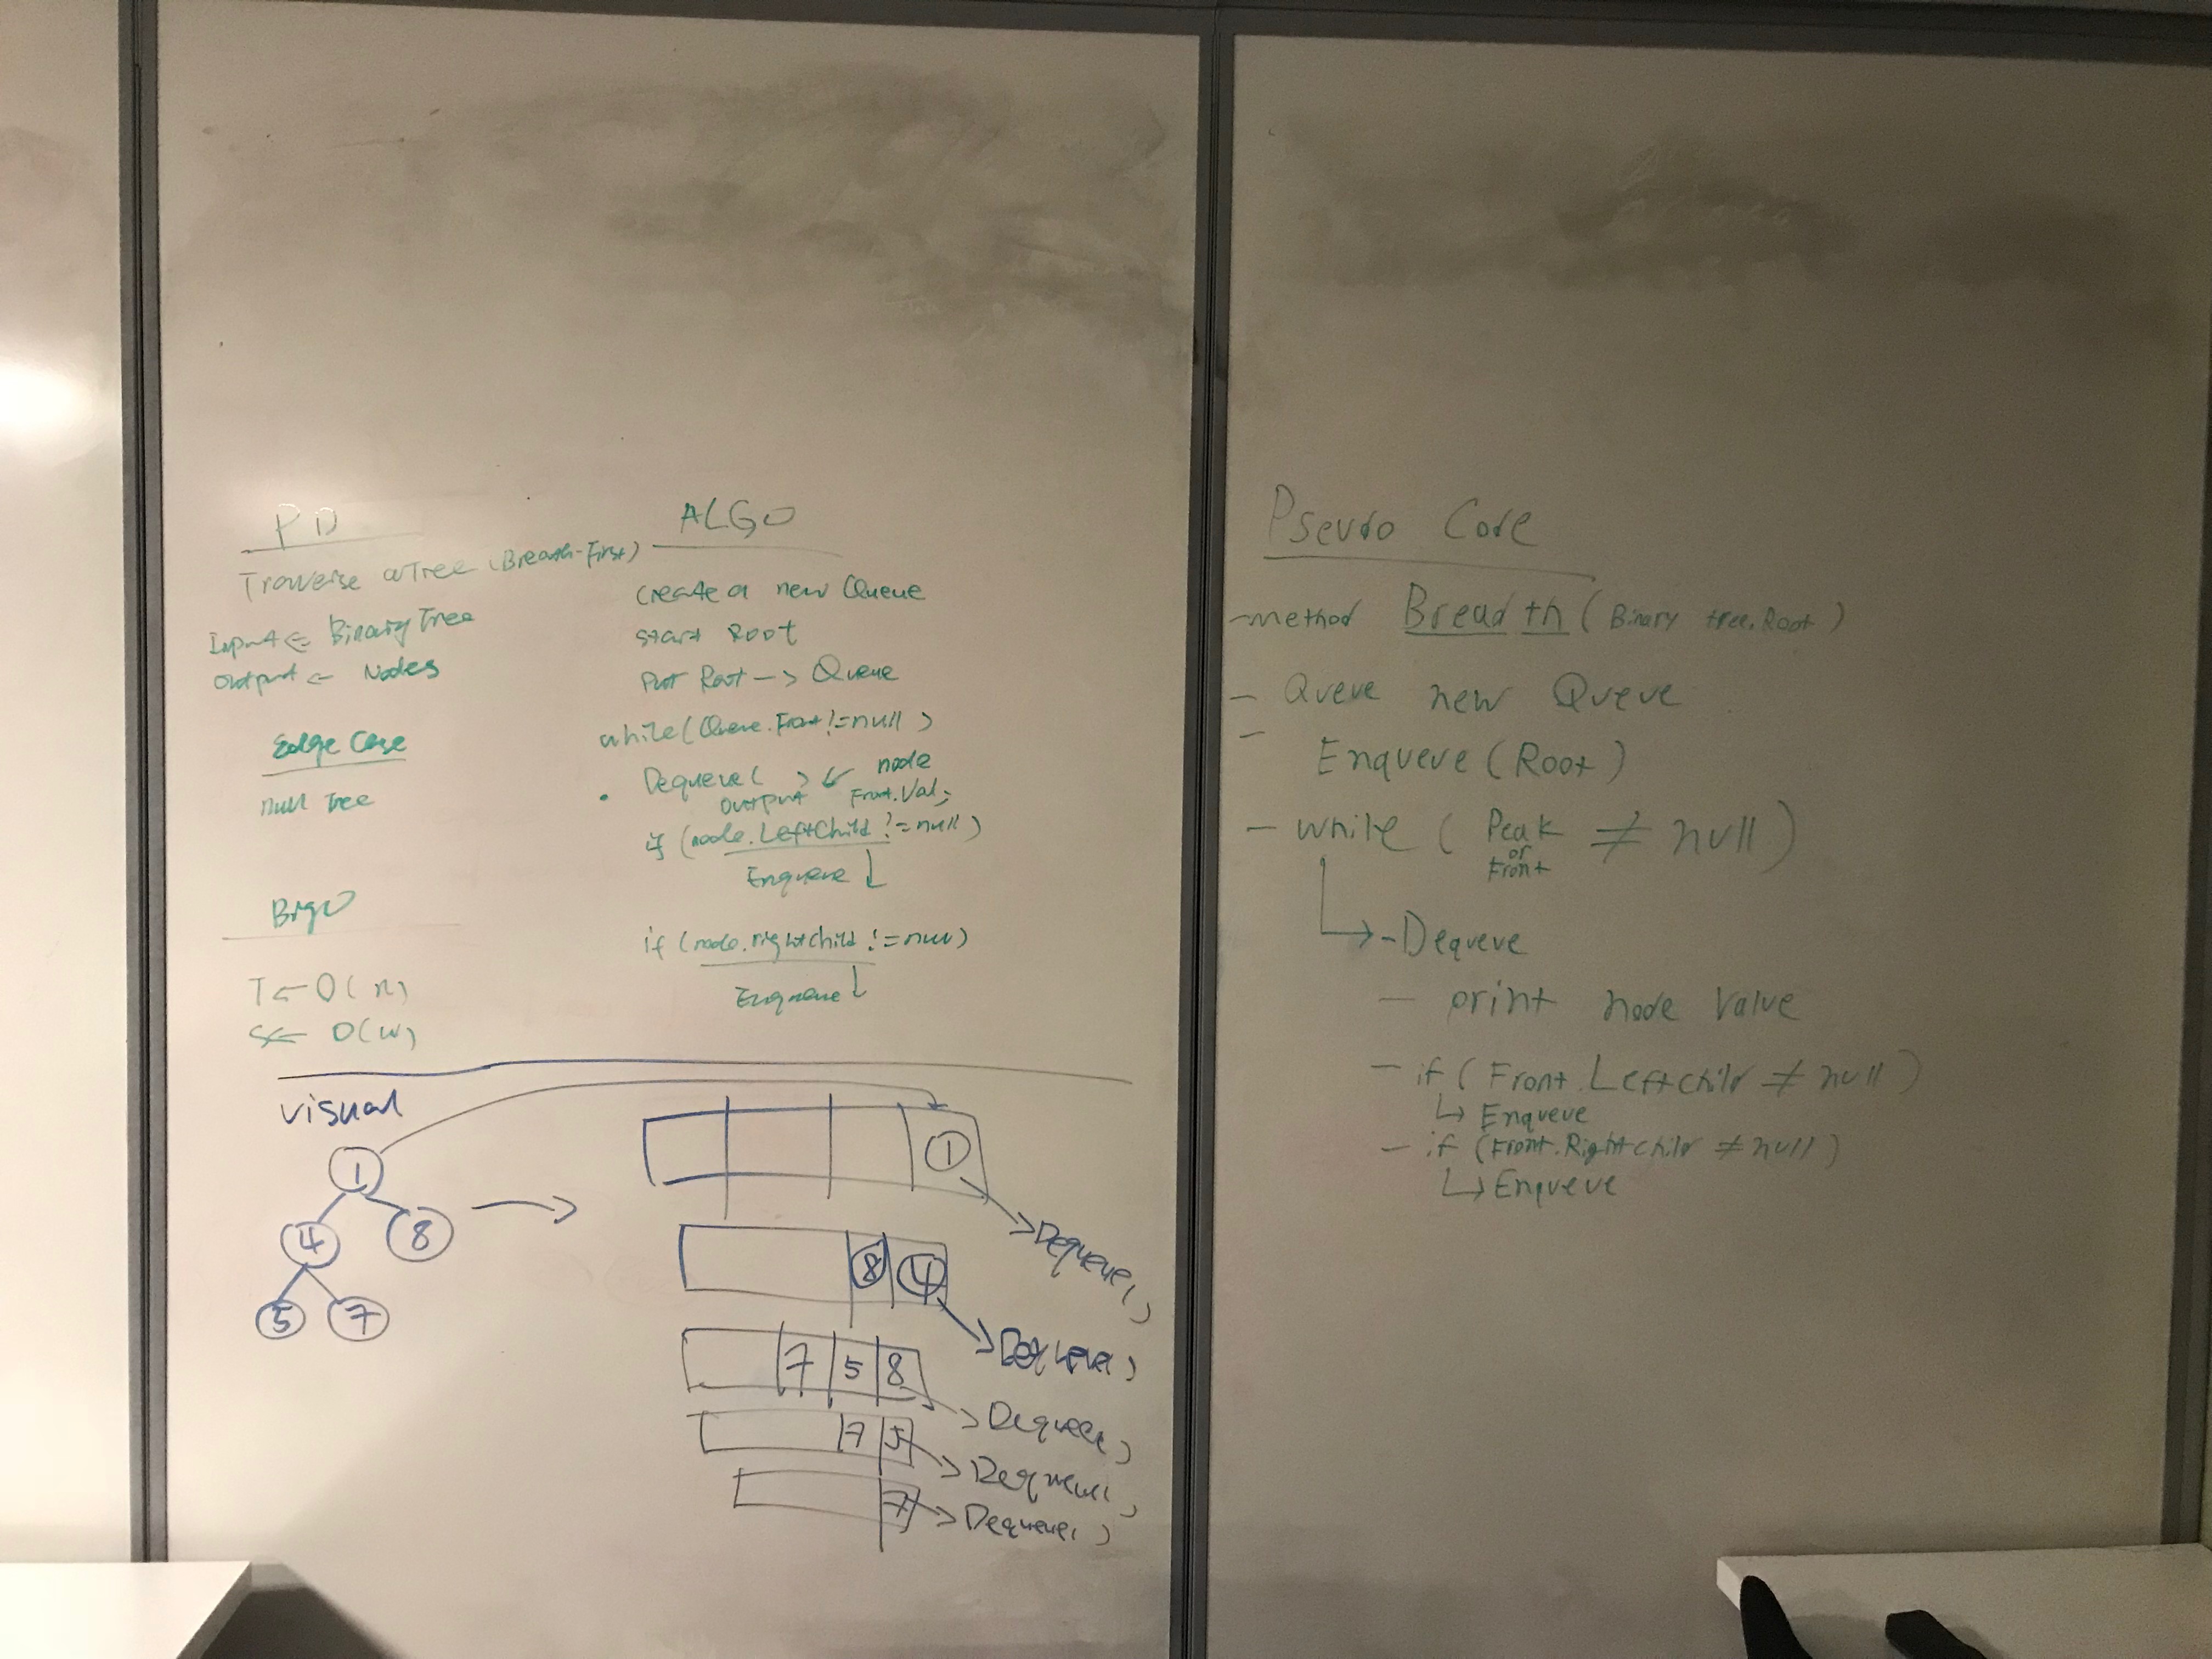 PD
Traverse a Tree (Breath-First)
Input <= Binary Tree
Output <- Nodes
Edge Case
null Tree
BigO
T <- O(n)
S <- O(w)
ALGO
create a new Queue
start Root
Put Root -> Queue
while(Queue.Front != null)
• Dequeue( ) <- node
output Front.Val;
if (node.LeftChild != null)
Enqueue ↓
if (node.rightChild != null)
Enqueue ↓
visual
1
4 8
5 7
1
Dequeue()
8 4
Dequeue()
7 5 8
Dequeue()
7 5
Dequeue()
7
Dequeue()
Pseudo Code
-method Breadth (Binary tree.Root)
- Queue new Queue
-
Enqueue (Root)
- while (Peak ≠ null)
or
Front
↳ - Dequeue
- print node Value
- if (Front.LeftChild ≠ null)
↳ Enqueue
- if (Front.RightChild ≠ null)
↳ Enqueue